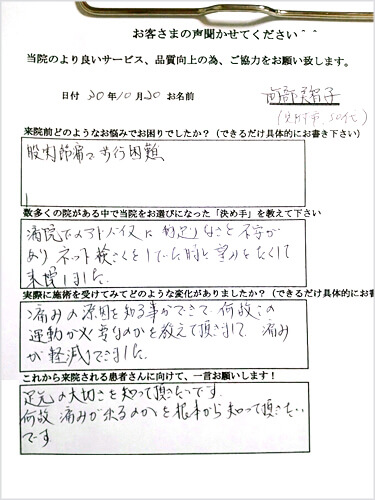 お客さまの声聞かせてください＾＾
当院のより良いサービス、品質向上の為、ご協力をお願い致します。
日付 30年10月20 お名前 阿部 智子
市、50代)
来院前どのようなお悩みでお困りでしたか？（できるだけ具体的にお書き下さい）
股関節痛で歩行困難
数多くの院がある中で当院をお選びになった「決め手」を教えて下さい
病院でのアドバイスに物足りなさと不安が
あり ネット検さくをしていた時と望みをたくして
来院しました。
実際に施術を受けてみてどのような変化がありましたか？（できるだけ具体的にお書
痛みの原因を知る事ができて、何故この
運動が必要なのかを教えて頂きまして、痛み
が軽減できました。
これから来院される患者さんに向けて、一言お願いします！
足元の大切さを知って頂きたいです。
何故 痛みが出るのかを根本から知って頂きたい
です。